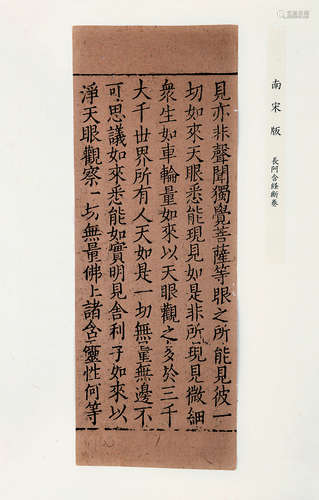 南宋版
長阿含経断巻
見亦非聲聞獨覺菩薩等眼之所能見彼一
切如來天眼悉能現見如是非所現見微細
衆生如車輪量如來以天眼觀之多於三千
大千世界所有人天如是一切無量無邊不
可思議如來悉能如實明見舎利子如來以
淨天眼觀察一切無量佛土諸含靈性何等